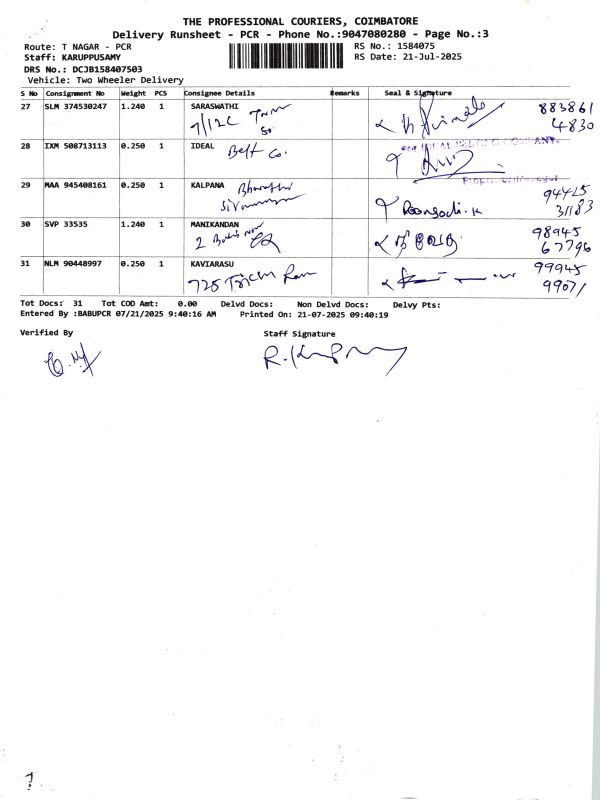 THE PROFESSIONAL COURIERS, COIMBATORE
Delivery Runsheet - PCR - Phone No.:9047080280 - Page No.:3
Route: T NAGAR - PCR RS No.: 1584075
Staff: KARUPPUSAMY RS Date: 21-Jul-2025
DRS No.: DCJB158407503
Vehicle: Two Wheeler Delivery
S No Consignment No Weight PCS Consignee Details Remarks Seal & Signature
27 SLM 374530247 1.240 1 SARASWATHI 883861
7/12C 4830
28 IXM 508713113 0.250 1 IDEAL
Belt Co.
29 MAA 945408161 0.250 1 KALPANA 94425
31183
30 SVP 33535 1.240 1 MANIKANDAN 98945
2 67796
31 NLM 90448997 0.250 1 KAVIARASU 99945
725 99071
Tot Docs: 31 Tot COD Amt: 0.00 Delvd Docs: Non Delvd Docs: Delvy Pts:
Entered By :BABUPCR 07/21/2025 9:40:16 AM Printed On: 21-07-2025 09:40:19
Verified By Staff Signature